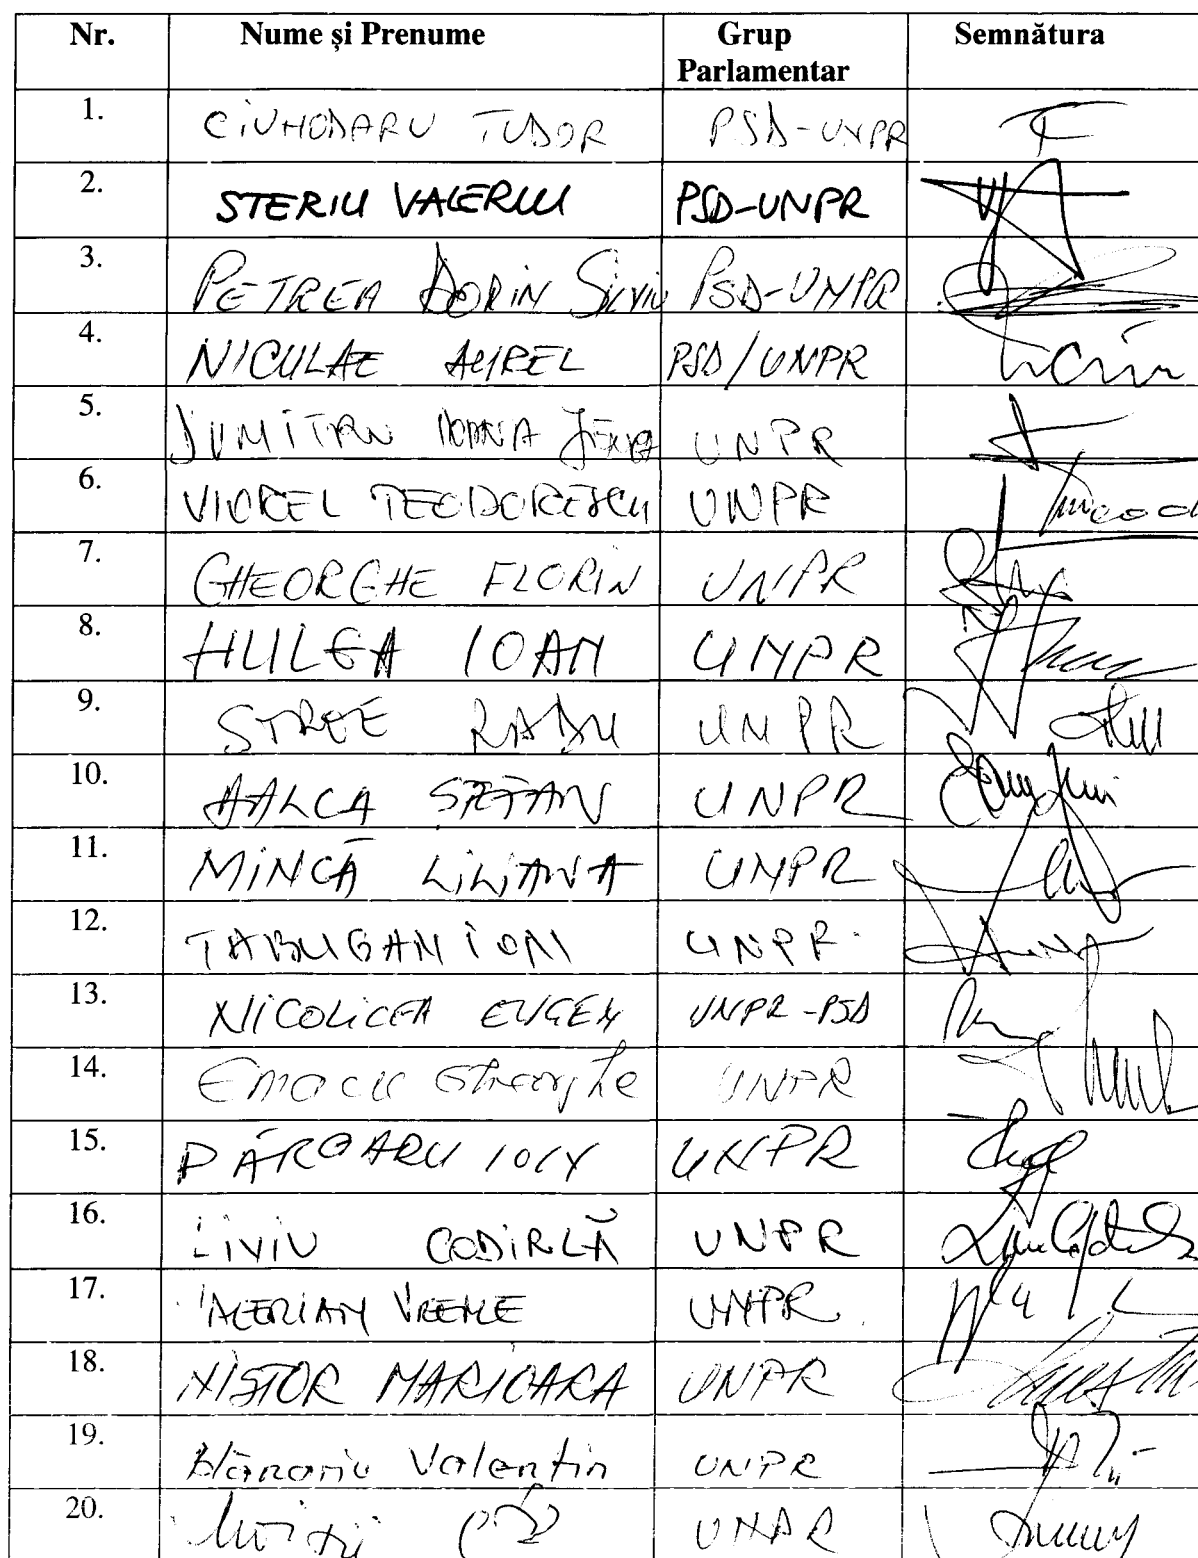 Nr. Nume și Prenume Grup Parlamentar Semnătura
1. CIUHODARU TUDOR PSD-UNPR
2. STERIU VALERIU PSD-UNPR
3. PETREA DORIN SILVIU PSD-UNPR
4. NICULAE AUREL PSD/UNPR
5. DUMITRU IOANA UNPR
6. VIOREL TEODORESCU UNPR
7. GHEORGHE FLORIN UNPR
8. HULEA IOAN UNPR
9. STROE RADU UNPR
10. UNPR
11. MINCĂ LILIANA UNPR
12. ION UNPR
13. NICOLICEA EUGEN UNPR-PSD
14. Emacu Gheorghe UNPR
15. PÂRGARU ION UNPR
16. LIVIU CODÎRLĂ UNPR
17. VALERIAN VREME UNPR
18. NISTOR MARIOARA UNPR
19. Blănariu Valentin UNPR
20. UNPR